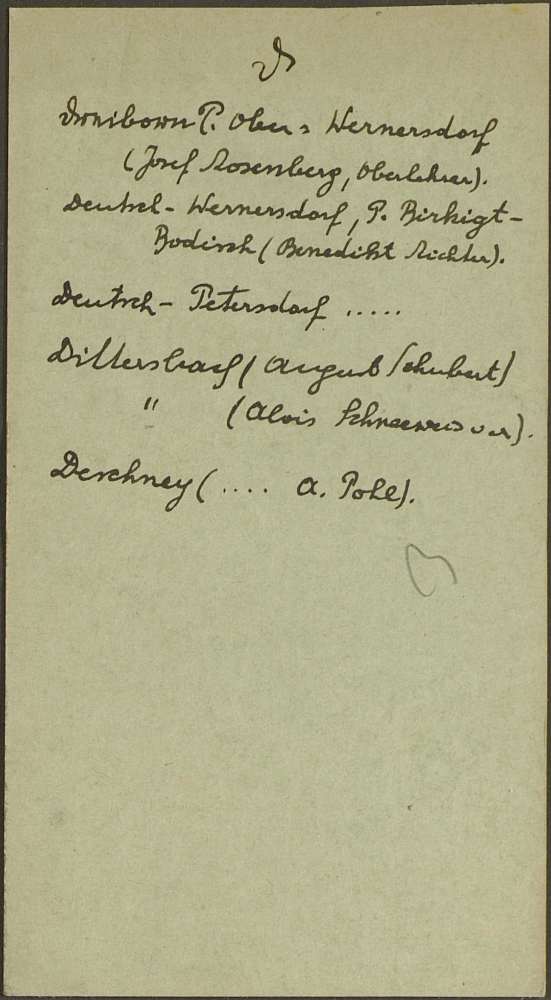 D
Drniborn P. Ober-Wernersdorf
(Josef Rosenberg, Oberlehrer).
Deutsch-Wernersdorf, P. Birkigt-
Bodisch (Benedikt Richter).
Deutsch-Petersdorf .....
Dittersbach (August Schubert)
" (Alois
Deschney (.... A. Pohl).